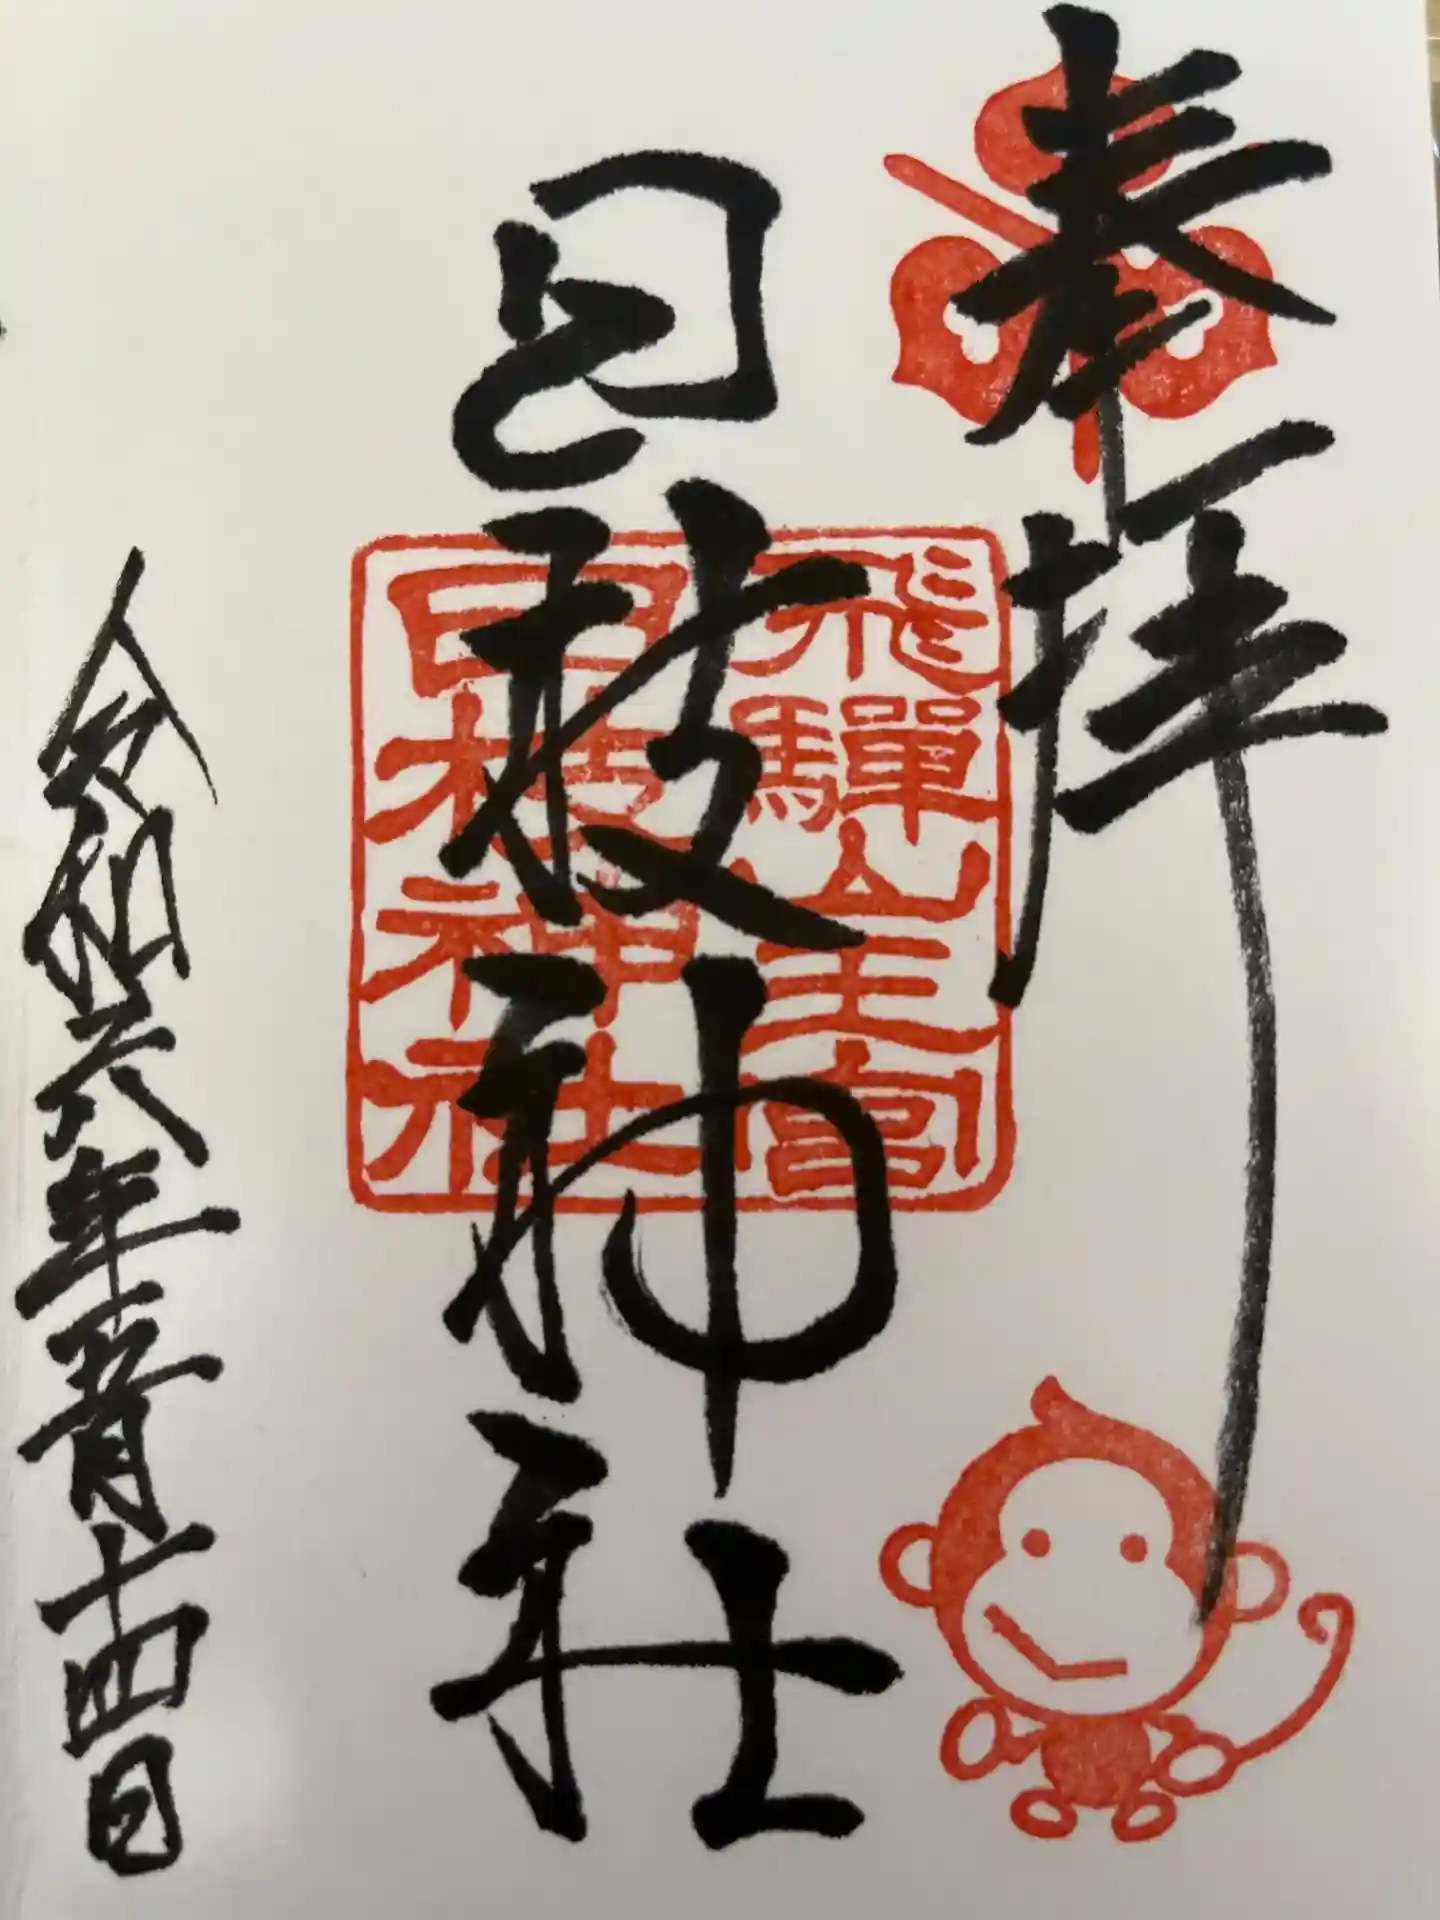 奉拝
日枝神社
飛騨山王宮
日枝神社
令和六年五月十四日